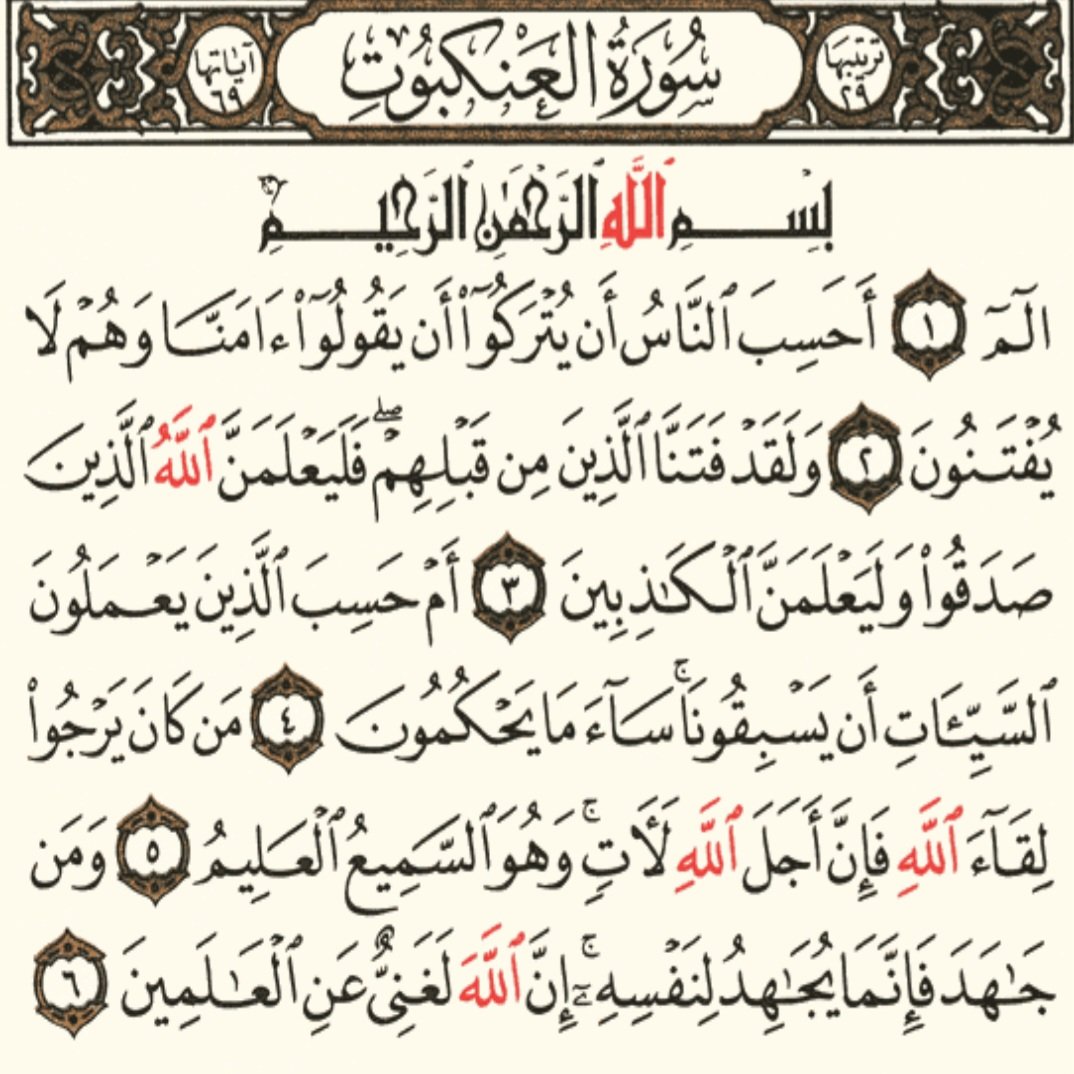 ترتيبها ٢٩ سُورَةُ العَنْكَبُوتِ آيَاتها ٦٩
بِسْمِ ٱللَّهِ ٱلرَّحْمَٰنِ ٱلرَّحِيمِ
الٓمٓ ١ أَحَسِبَ ٱلنَّاسُ أَن يُتْرَكُوٓا۟ أَن يَقُولُوٓا۟ ءَامَنَّا وَهُمْ لَا
يُفْتَنُونَ ٢ وَلَقَدْ فَتَنَّا ٱلَّذِينَ مِن قَبْلِهِمْ ۖ فَلَيَعْلَمَنَّ ٱللَّهُ ٱلَّذِينَ
صَدَقُوا۟ وَلَيَعْلَمَنَّ ٱلْكَٰذِبِينَ ٣ أَمْ حَسِبَ ٱلَّذِينَ يَعْمَلُونَ
ٱلسَّيِّـَٔاتِ أَن يَسْبِقُونَا ۚ سَآءَ مَا يَحْكُمُونَ ٤ مَن كَانَ يَرْجُوا۟
لِقَآءَ ٱللَّهِ فَإِنَّ أَجَلَ ٱللَّهِ لَـَٔاتٍ ۚ وَهُوَ ٱلسَّمِيعُ ٱلْعَلِيمُ ٥ وَمَن
جَٰهَدَ فَإِنَّمَا يُجَٰهِدُ لِنَفْسِهِۦٓ ۚ إِنَّ ٱللَّهَ لَغَنِىٌّ عَنِ ٱلْعَٰلَمِينَ ٦